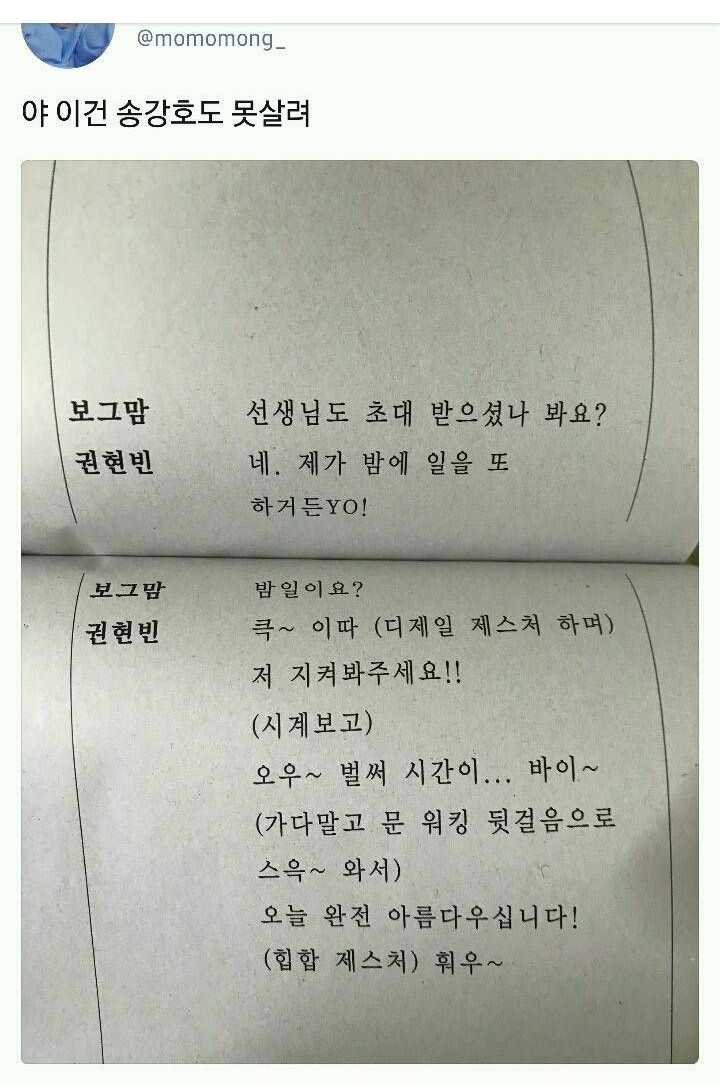 @momomong_
야 이건 송강호도 못살려
보그맘 선생님도 초대 받으셨나 봐요?
권현빈 네. 제가 밤에 일을 또
하거든YO!
보그맘 밤일이요?
권현빈 큭~ 이따 (디제일 제스처 하며)
저 지켜봐주세요!!
(시계보고)
오우~ 벌써 시간이... 바이~
(가다말고 문 워킹 뒷걸음으로
스윽~ 와서)
오늘 완전 아름다우십니다!
(힙합 제스처) 훠우~